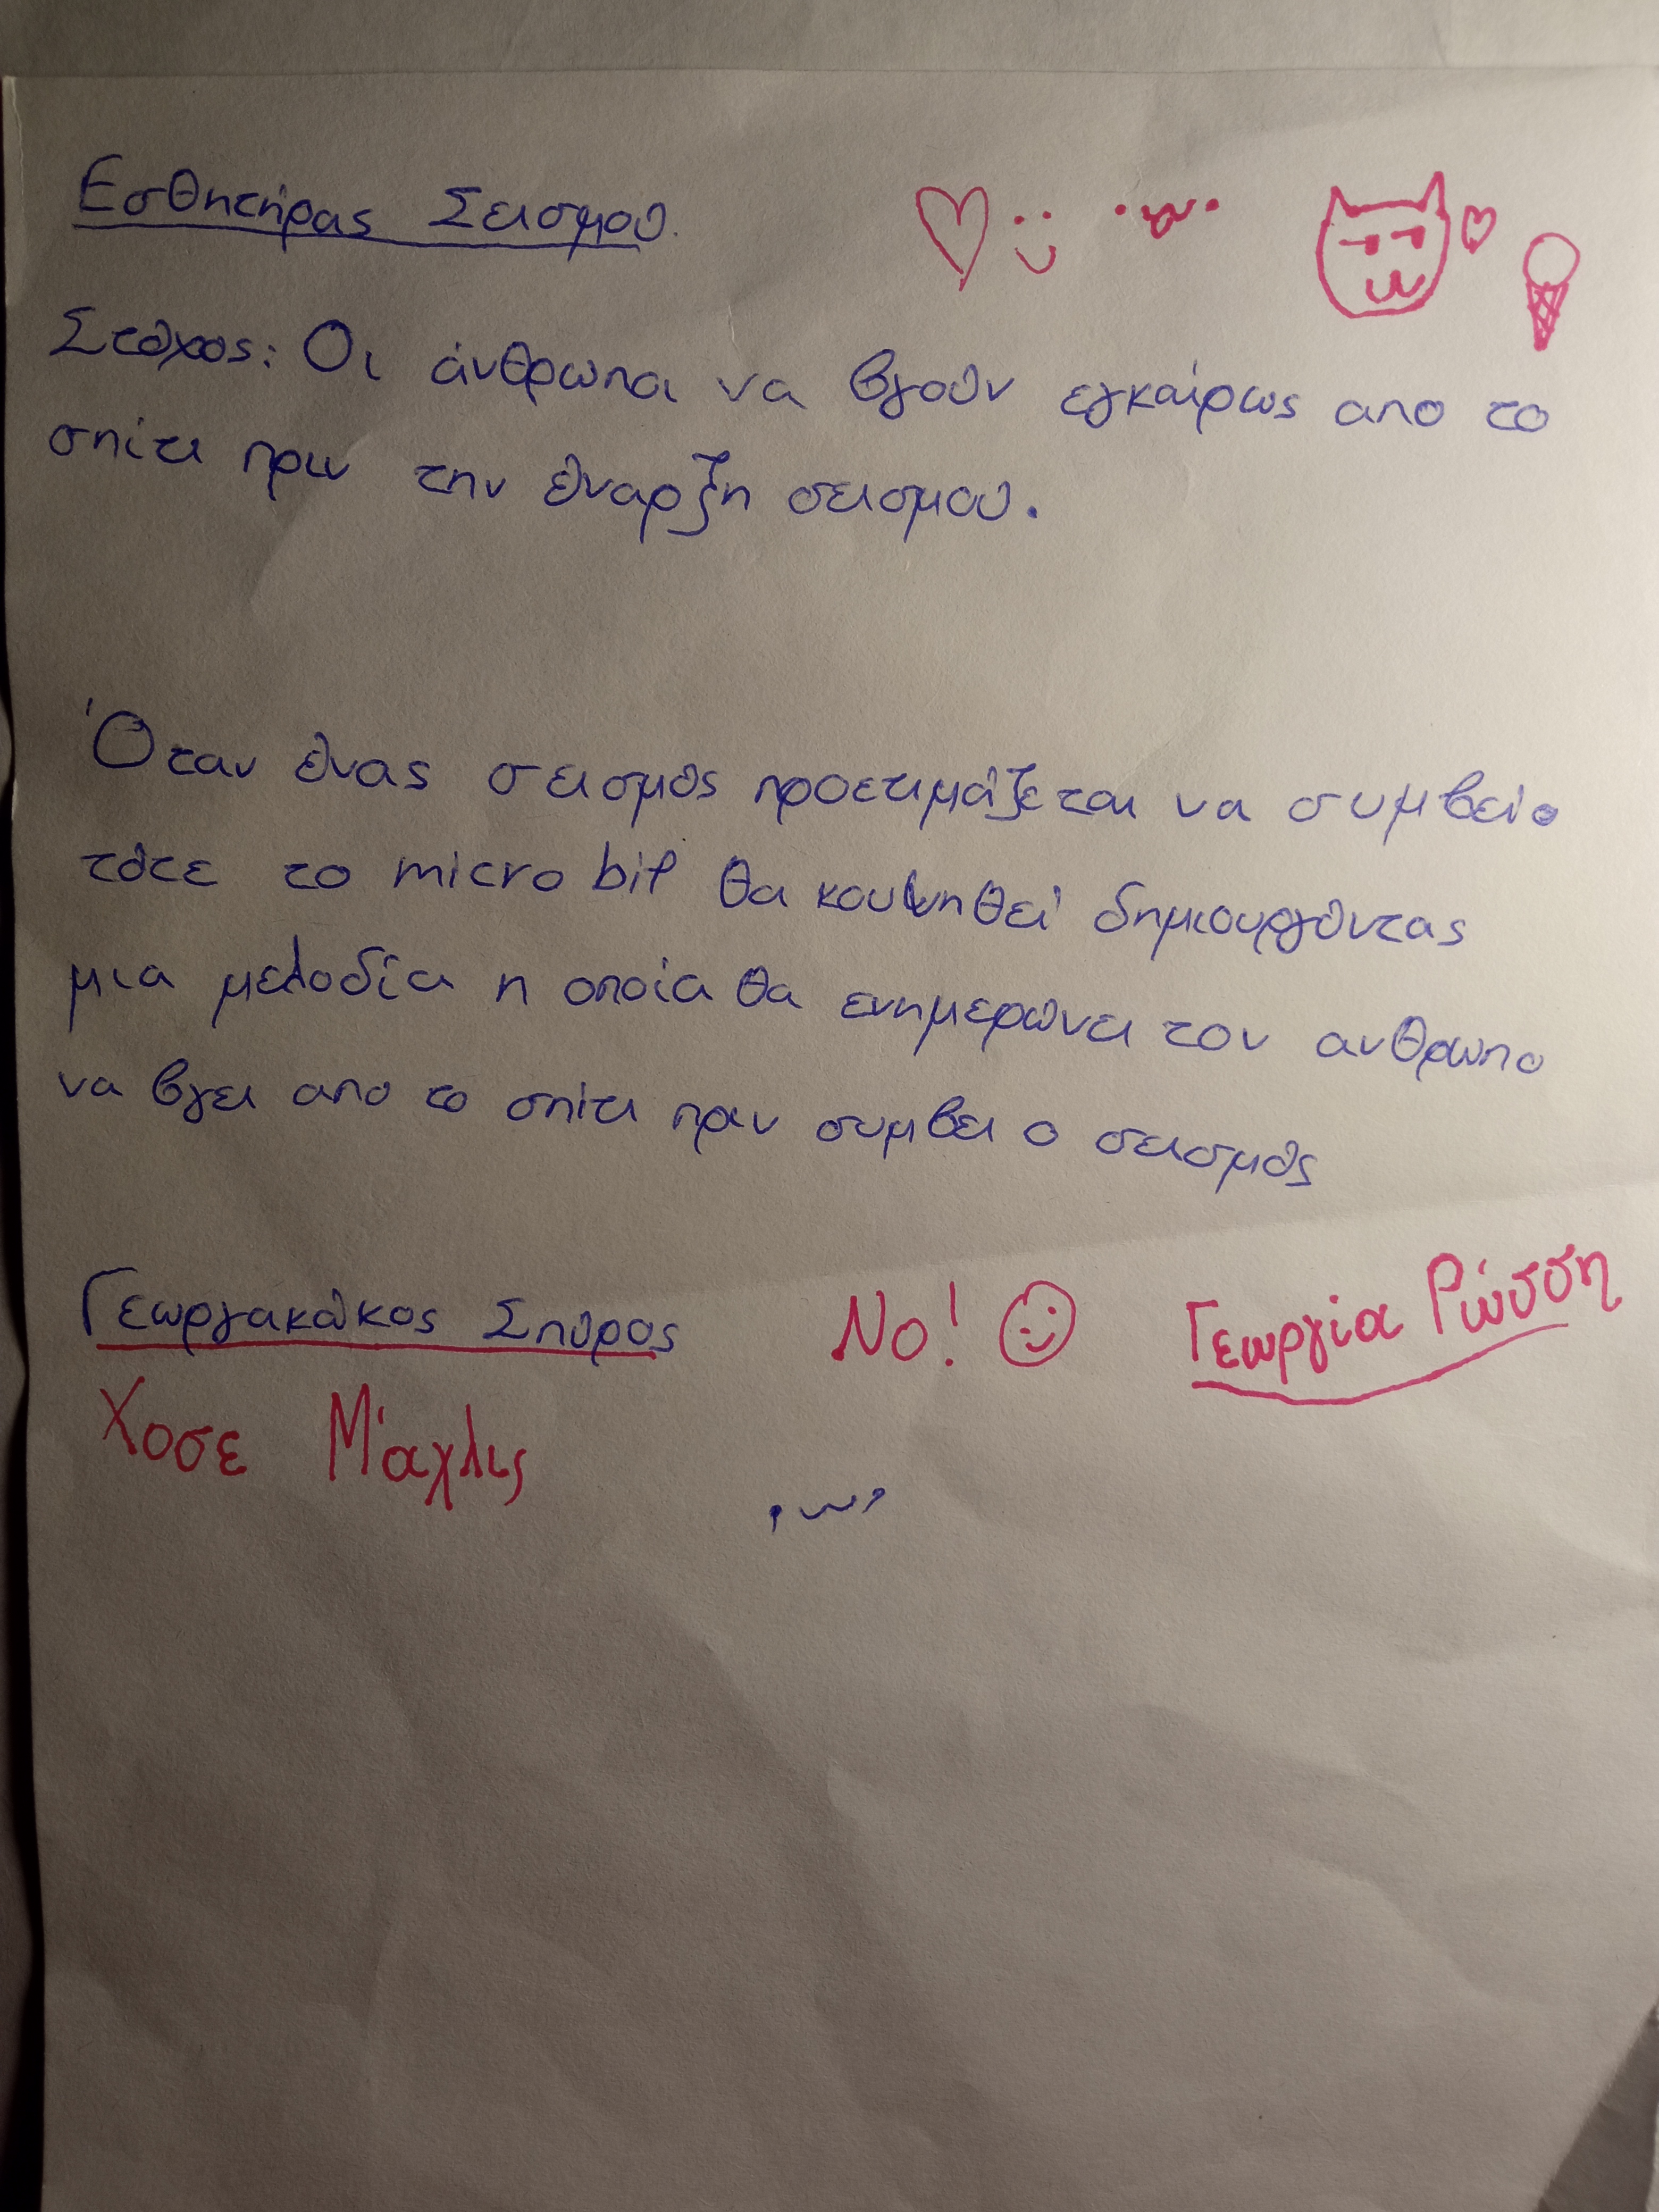 Εσθητήρας Σεισμού.
Στόχος: Οι άνθρωποι να βγούν εγκαίρως απο το
σπίτι πριν την έναρξη σεισμού.
Όταν ένας σεισμός προετιμάζεται να συμβεί.
τότε το micro bit θα κουνηθεί δημιουργόντας
μια μελοδία η οποία θα ενημερώνει τον ανθρωπο
να βγει απο το σπίτι πριν συμβει ο σεισμός
Γεωργακάκος Σπύρος No! Γεωργία Ρώσση
Χοσε Μάχλις